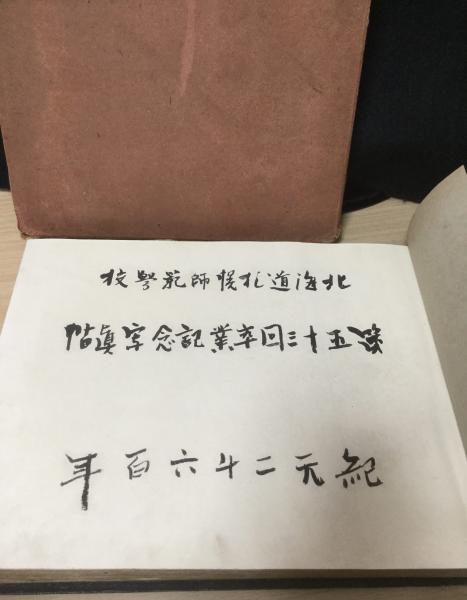 北海道札幌師範学校
第五十三回卒業記念写眞帖
紀元二千六百年